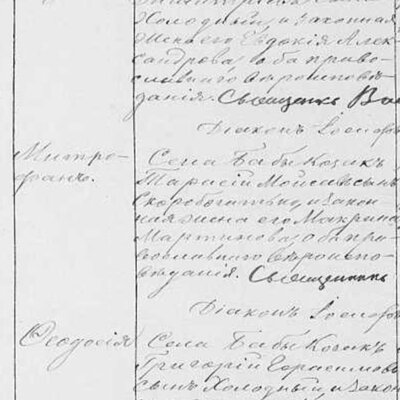 Холодный, и законная
жена его Евдокія Алек-
сандрова, оба право-
славнаго вѣроисповѣ-
данія. Священникъ
Діаконъ Іосифъ
Митро-
фанъ.
Села Бабы Козакъ
Тарасій Мойсеевъ сынъ
Скоробогатько, и закон-
ная жена его Макрина
Мартинова, оба пра-
вославнаго вѣроиспо-
вѣданія. Священникъ
Діаконъ Іосифъ
Ѳеодосія
Села Бабы Козакъ
Григорій Герасимовъ
сынъ Холодный, и закон